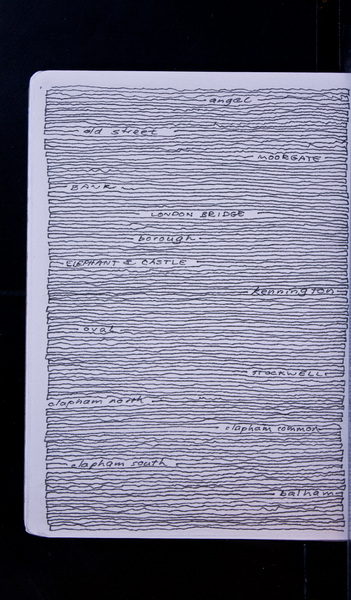 angel
old street
MOORGATE
BANK
LONDON BRIDGE
borough
ELEPHANT & CASTLE
kennington
oval
STOCKWELL
clapham north
clapham common
clapham south
balham